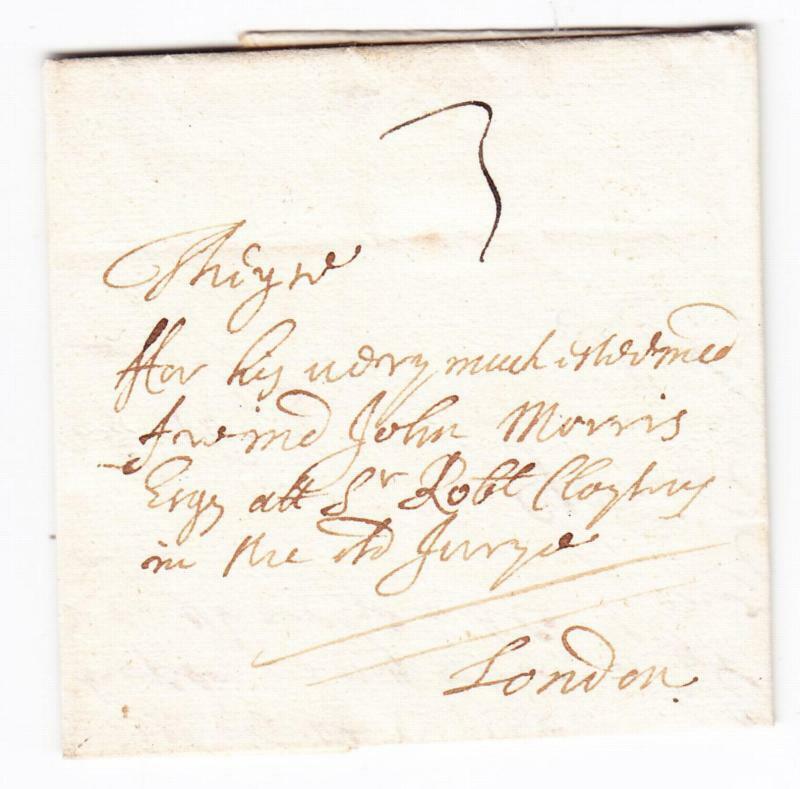 3
Theise
ffor his very much esteemed
freind John Morris
Esqr att Sr Robt Claytons
in the old Jurye
London